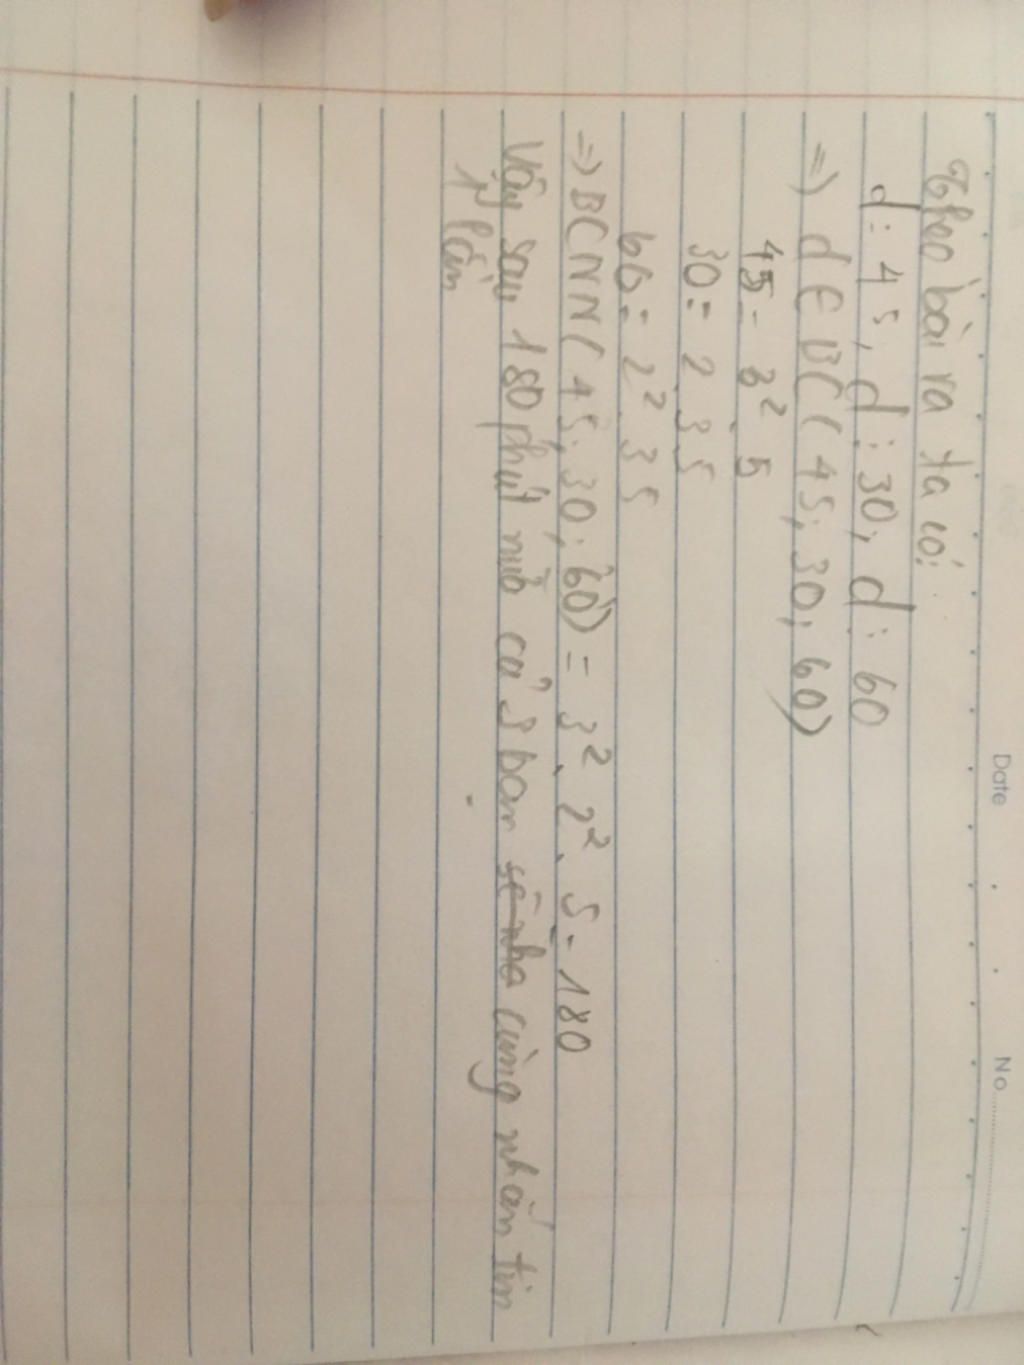 Date No
Theo bài ra ta có:
d⋮45, d⋮30, d⋮60
=> d ∈ BC(45; 30; 60)
45 = 3² . 5
30 = 2 . 3 . 5
60 = 2² . 3 . 5
=> BCNN(45; 30; 60) = 3² . 2² . 5 = 180
Vậy sau 180 phút nữa cả 3 bạn cùng nhắn tin
1 lần